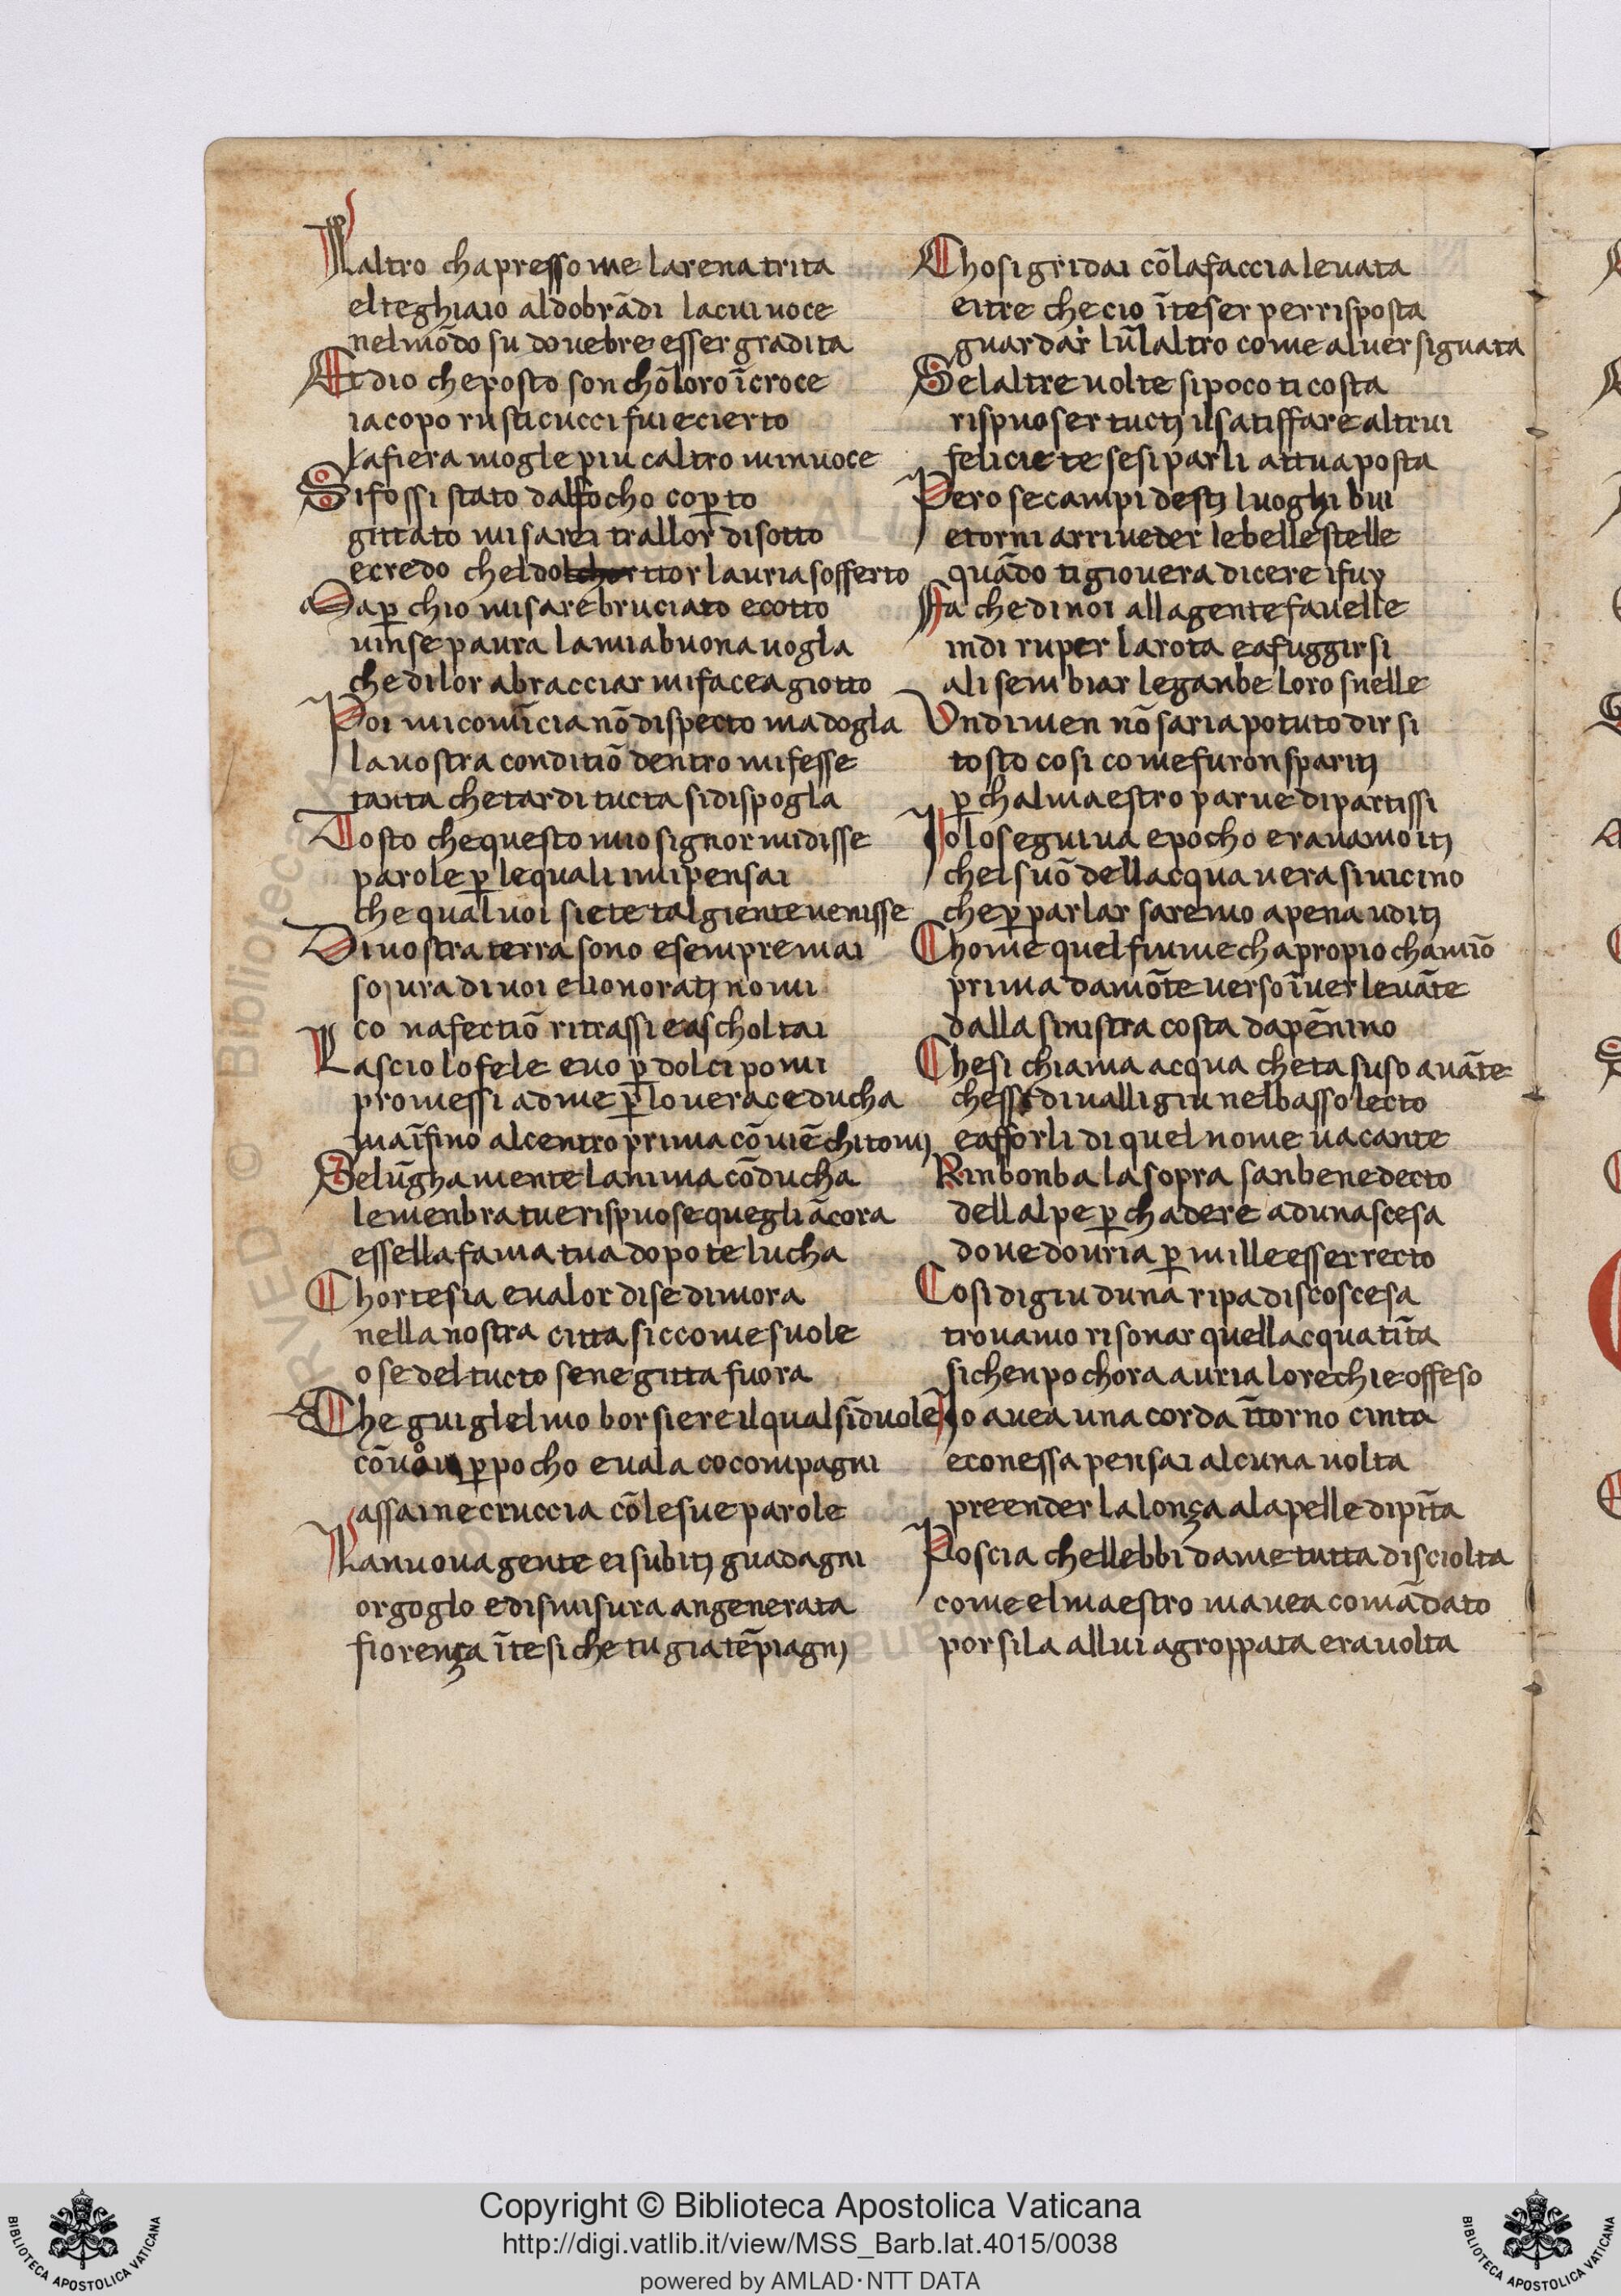 Laltro chapresso me larena trita
elteghiaio aldobrādi lacui uoce
nelmōdo su douebre esser gradita
Et dio cheposto son chōloro īcroce
iacopo rusticucci fui ecierto
lafiera mogle piu caltro minuoce
Sifossi stato dalfocho cop̄to
gittato misarei trallor disotto
ecredo cheldoltchor ttor lauria sofferto
Map̄ chio misare bruciato ecotto
uinse paura lamiabuona uogla
chedilor abracciar mifacea giotto
Poi micomīcia nō dispecto ma dogla
lauostra conditiō dentro mifesse
tanta chetardi tucta sidispogla
Tosto chequesto mio signor midisse
parole p̄ lequali imipensai
che qual uoi siete tal giente uenisse
Diuostra terra sono esempre mai
soura diuoi elionorati nomi
co nafectiō ritrassi eascholtai
Lascio lofele euo p̄ dolci pomi
promessi adme p̄ louerace ducha
maīfino alcentro prima cōuiē chitomi
Selūghamente lanima cōducha
lemenbra tue rispuose quegli ācora
essella fama tua dopo te lucha
Chortesia eualor disedimora
nella nostra citta siccome suole
o se del tucto sene gitta fuora
Che guiglelmo borsiere ilqual sīduole
cōuoi p̄ pocho euala cocompagni
assaine cruccia cōle sue parole
Lanuoua gente ei subiti guadagni
orgoglo edismisura angenerata
fiorença īte si che tu gia tē piagni
Chosi gridai cōlafaccia leuata
eitre checio īteser per risposta
guardar lūlaltro come aluer siguata
Selaltre uolte sipoco ti costa
rispuoser tucti ilsatiffare altrui
felicie te sesiparli attua posta
Pero secampi desti luoghi bui
etorni arriueder lebelle stelle
quādo ti giouera dicere ifuy
Fa che dinoi allagente fauelle
indi ruper larota eafuggirsi
ali sembiar leganbe loro snelle
Vndimen nō saria potuto dirsi
tosto cosi come furon spariti
p̄ chalmaestro parue dipartissi
Iolo seguiua epocho erauamo iti
chelsuō dellacqua uera siuicino
chep̄ parlar saremo apena uditi
Chome quel fiume cha propio chamiō
prima damōte uerso īuer leuāte
dalla sinistra costa dapēnino
Chesi chiama acqua cheta suso auāte
chesse diualli giu nelbasso lecto
eafforli di quel nome uacante
Rinbonba la sopra san benedecto
dellalpe p̄ chadere aduna scesa
doue douria p̄ mille esser recto
Cosi digiu duna ripa discoscesa
trouamo risonar quellacqua tīta
sichenpochora auria lorechie offeso
Io auea una corda ītorno cinta
econessa pensai alcuna uolta
preender lalonça alapelle dipīta
Poscia chellebbi dame tutta disciolta
come elmaestro mauea comādato
porsila allui agroppata erauolta
Copyright © Biblioteca Apostolica Vaticana
http://digi.vatlib.it/view/MSS_Barb.lat.4015/0038
powered by AMLAD·NTT DATA
BIBLIOTECA APOSTOLICA VATICANA
BIBLIOTECA APOSTOLICA VATICANA